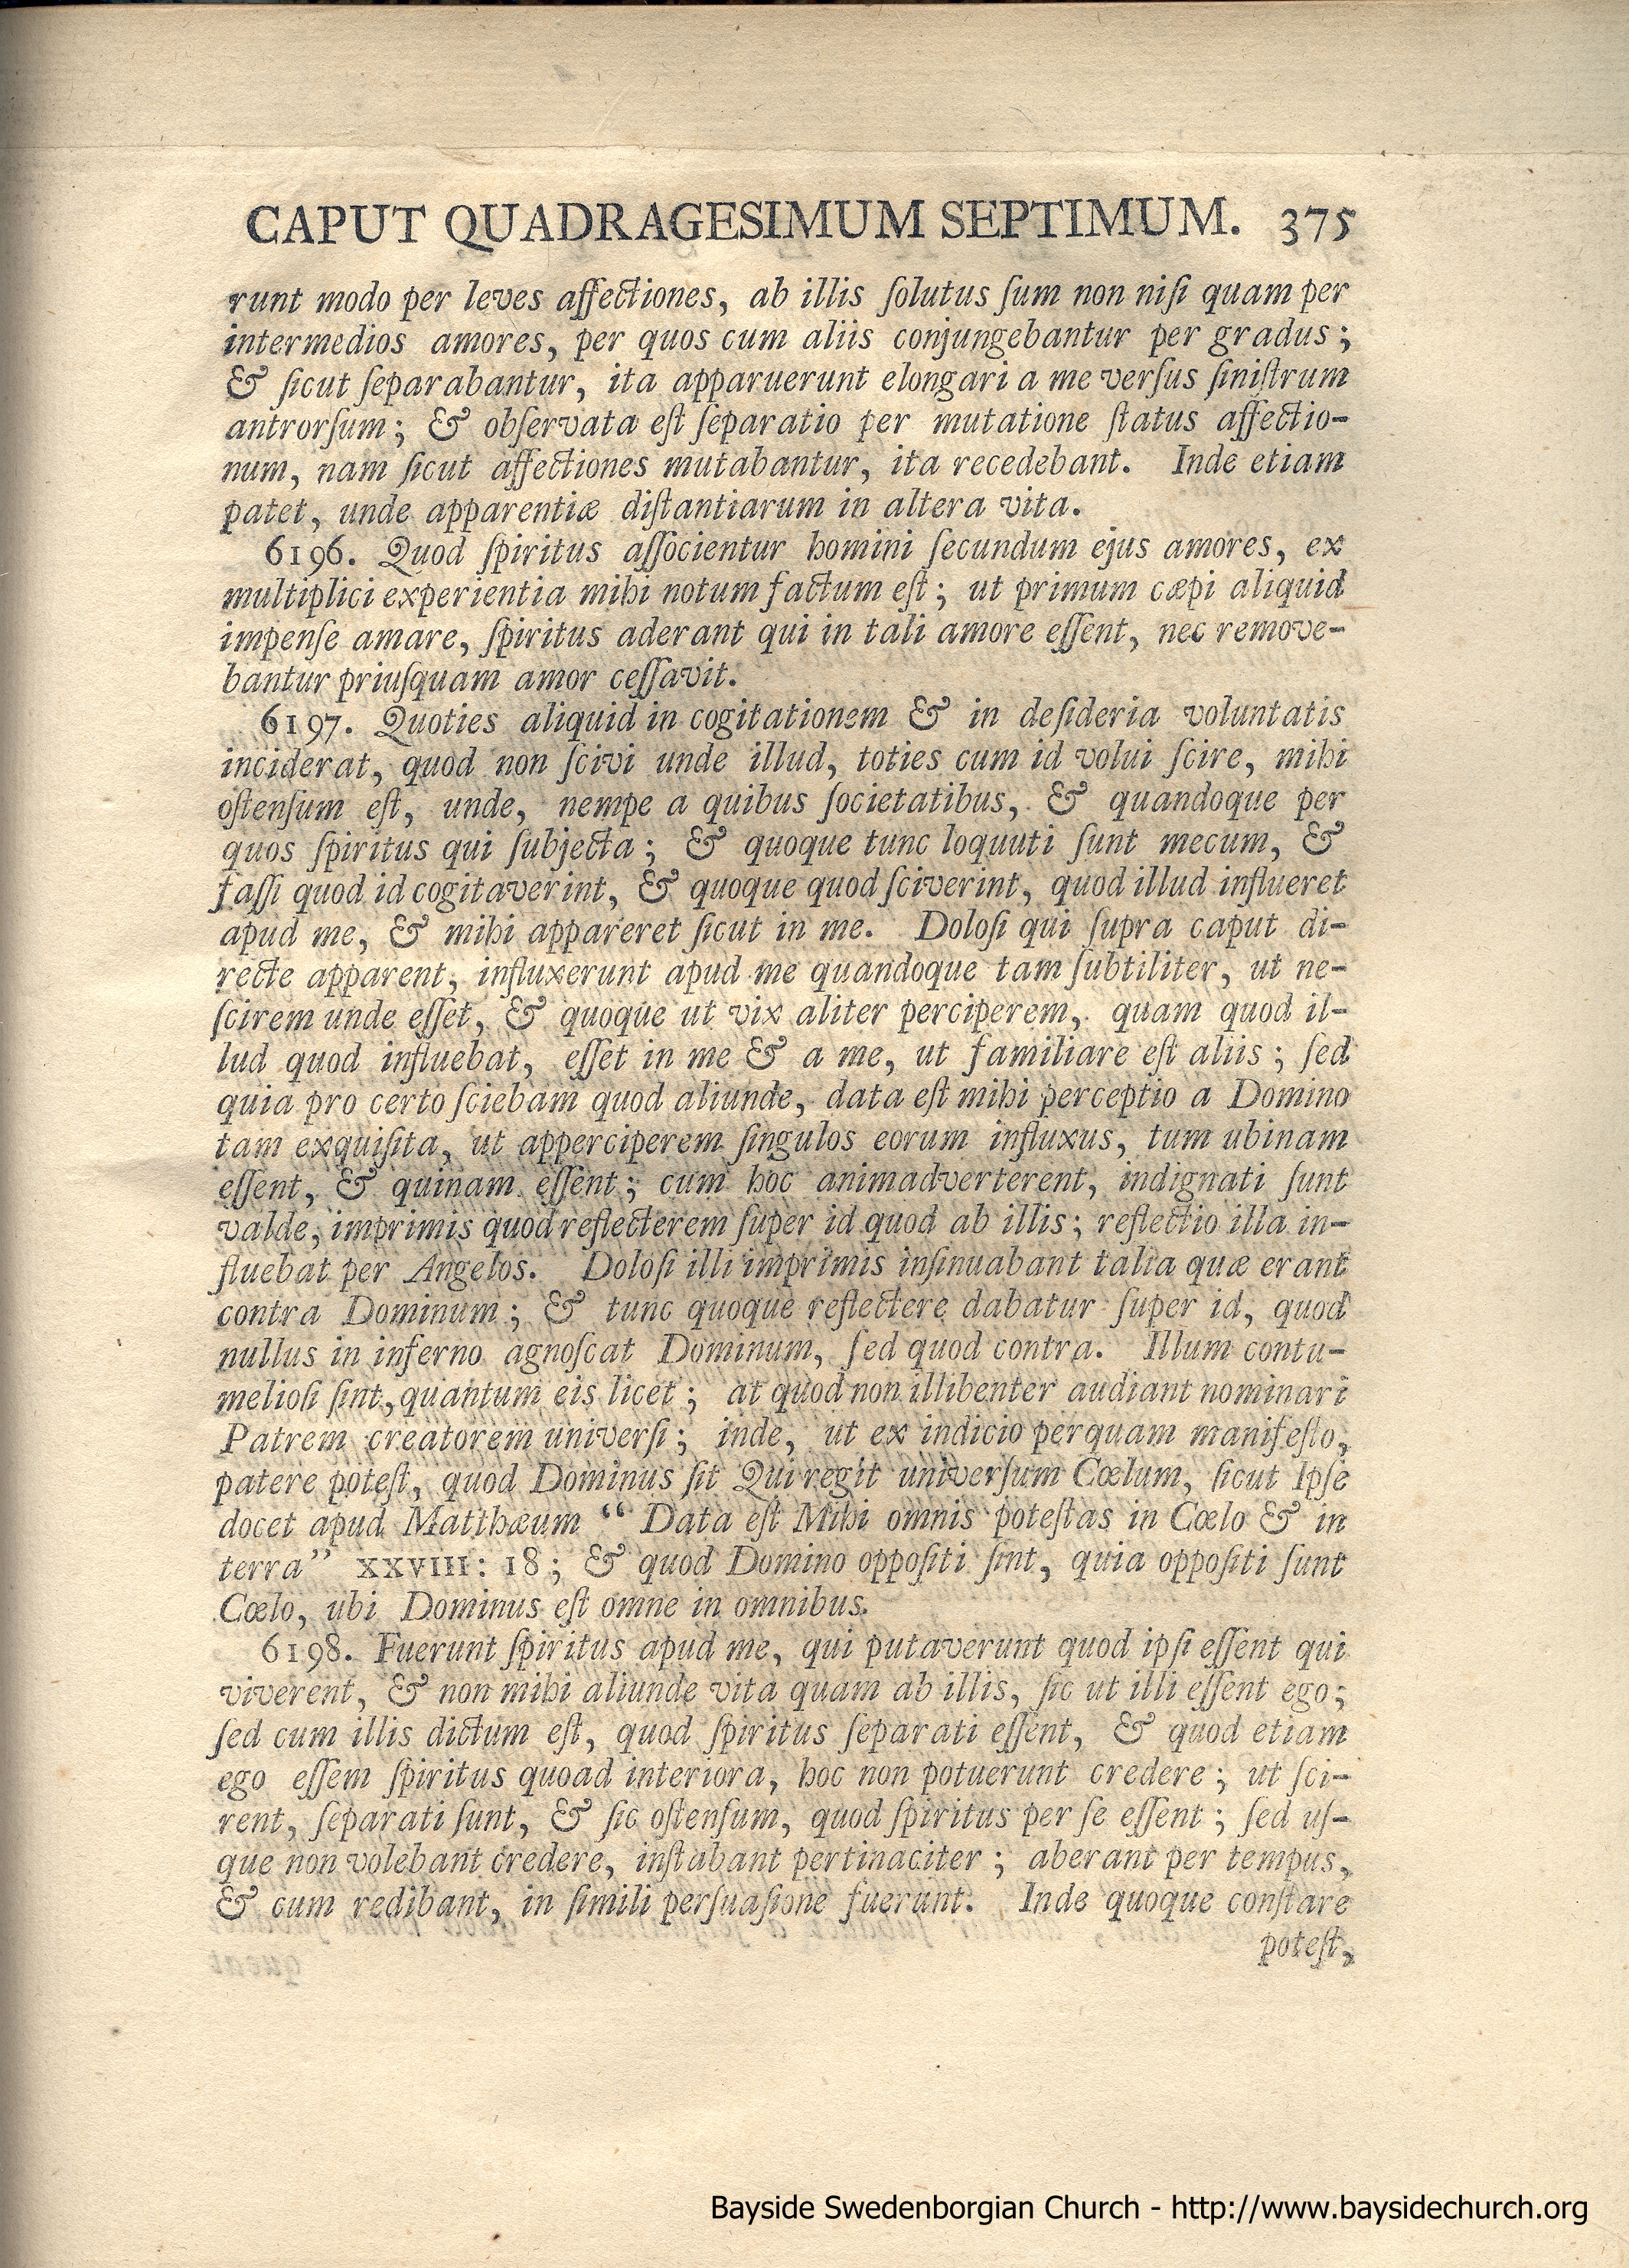 CAPUT QUADRAGESIMUM SEPTIMUM. 375
runt modo per leves affectiones, ab illis ſolutus ſum non niſi quam per
intermedios amores, per quos cum aliis conjungebantur per gradus;
& ſicut ſeparabantur, ita apparuerunt elongari a me verſus ſiniſtrum
antrorſum; & obſervata eſt ſeparatio per mutatione ſtatus affectio-
num, nam ſicut affectiones mutabantur, ita recedebant. Inde etiam
patet, unde apparentiæ diſtantiarum in altera vita.
6196. Quod ſpiritus aſſocientur homini ſecundum ejus amores, ex
multiplici experientia mihi notum factum eſt; ut primum cæpi aliquid
impenſe amare, ſpiritus aderant qui in tali amore eſſent, nec remove-
bantur priuſquam amor ceſſavit.
6197. Quoties aliquid in cogitationem & in deſideria voluntatis
inciderat, quod non ſcivi unde illud, toties cum id volui ſcire, mihi
oſtenſum eſt, unde, nempe a quibus ſocietatibus, & quandoque per
quos ſpiritus qui ſubjecta; & quoque tunc loquuti ſunt mecum, &
faſſi quod id cogitaverint, & quoque quod ſciverint, quod illud influeret
apud me, & mihi appareret ſicut in me. Doloſi qui ſupra caput di-
recte apparent, influxerunt apud me quandoque tam ſubtiliter, ut ne-
ſcirem unde eſſet, & quoque ut vix aliter perciperem, quam quod il-
lud quod influebat, eſſet in me & a me, ut familiare eſt aliis; ſed
quia pro certo ſciebam quod aliunde, data eſt mihi perceptio a Domino
tam exquiſita, ut apperciperem ſingulos eorum influxus, tum ubinam
eſſent, & quinam eſſent; cum hoc animadverterent, indignati ſunt
valde, imprimis quod reflecterem ſuper id quod ab illis; reflectio illa in-
fluebat per Angelos. Doloſi illi imprimis inſinuabant talia quæ erant
contra Dominum; & tunc quoque reflectere dabatur ſuper id, quod
nullus in inferno agnoſcat Dominum, ſed quod contra. Illum contu-
melioſi ſint, quantum eis licet; at quod non illibenter audiant nominari
Patrem creatorem univerſi; inde, ut ex indicio perquam manifeſto,
patere poteſt, quod Dominus ſit Qui regit univerſum Cœlum, ſicut Ipſe
docet apud Matthæum “ Data eſt Mihi omnis poteſtas in Cœlo & in
terra” XXVIII: 18; & quod Domino oppoſiti ſint, quia oppoſiti ſunt
Cœlo, ubi Dominus eſt omne in omnibus.
6198. Fuerunt ſpiritus apud me, qui putaverunt quod ipſi eſſent qui
viverent, & non mihi aliunde vita quam ab illis, ſic ut illi eſſent ego;
ſed cum illis dictum eſt, quod ſpiritus ſeparati eſſent, & quod etiam
ego eſſem ſpiritus quoad interiora, hoc non potuerunt credere; ut ſci-
rent, ſeparati ſunt, & ſic oſtenſum, quod ſpiritus per ſe eſſent; ſed uſ-
que non volebant credere, inſtabant pertinaciter; aberant per tempus,
& cum redibant, in ſimili perſuaſione fuerunt. Inde quoque conſtare
poteſt,
Bayside Swedenborgian Church - http://www.baysidechurch.org